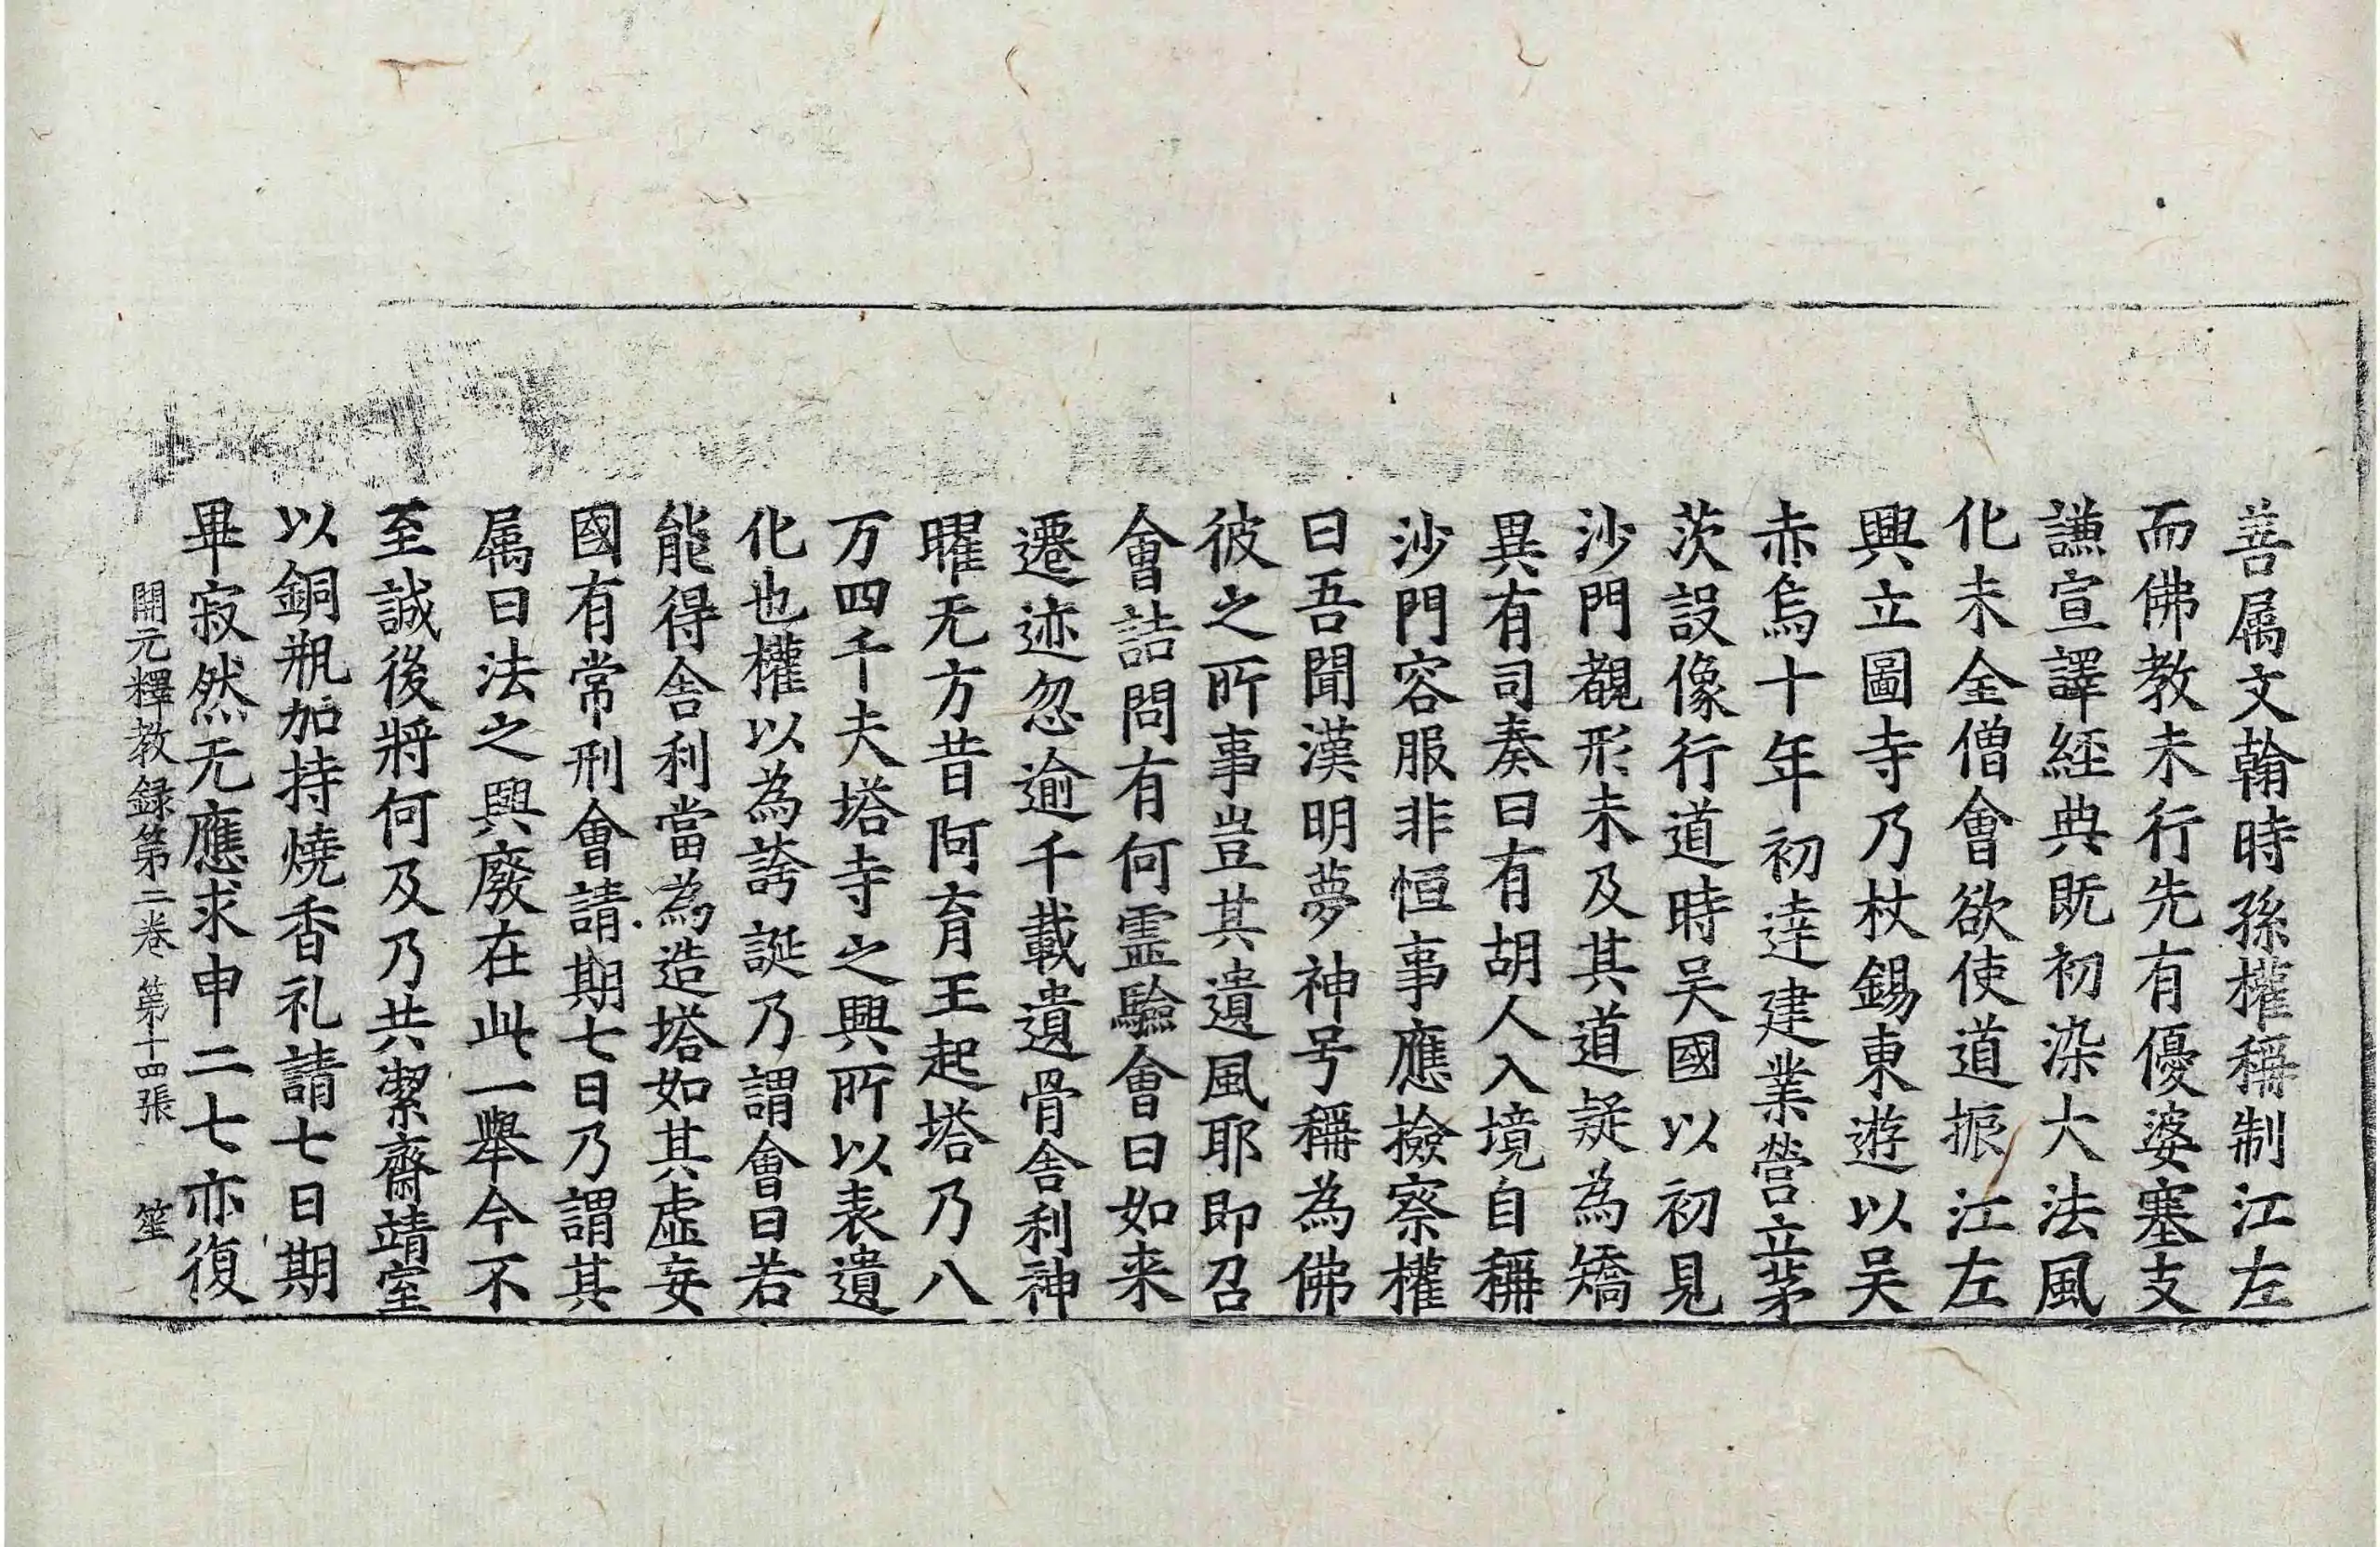 善属文翰時孫權稱制江左
而佛教未行先有優婆塞支
謙宣譯経典既初染大法風
化未全僧會欲使道振江左
興立圖寺乃杖錫東遊以吴
赤烏十年初達建業營立茅
茨設像行道時吴國以初見
沙門覩形未及其道疑為矯
異有司奏曰有胡人入境自稱
沙門容服非恒事應撿察權
曰吾聞漢明夢神号稱為佛
彼之所事豈其遺風耶即召
會詰問有何霊驗會曰如来
遷迹忽逾千載遺骨舎利神
曜无方昔阿育王起塔乃八
万四千夫塔寺之興所以表遺
化也權以為誇誕乃謂會曰若
能得舎利當為造塔如其虚妄
國有常刑會請期七日乃謂其
属曰法之興廢在此一舉今不
至誠後將何及乃共潔齋靖室
以銅瓶加持燒香礼請七日期
畢寂然无應求申二七亦復
開元釋教録第二卷 第十四張 笙